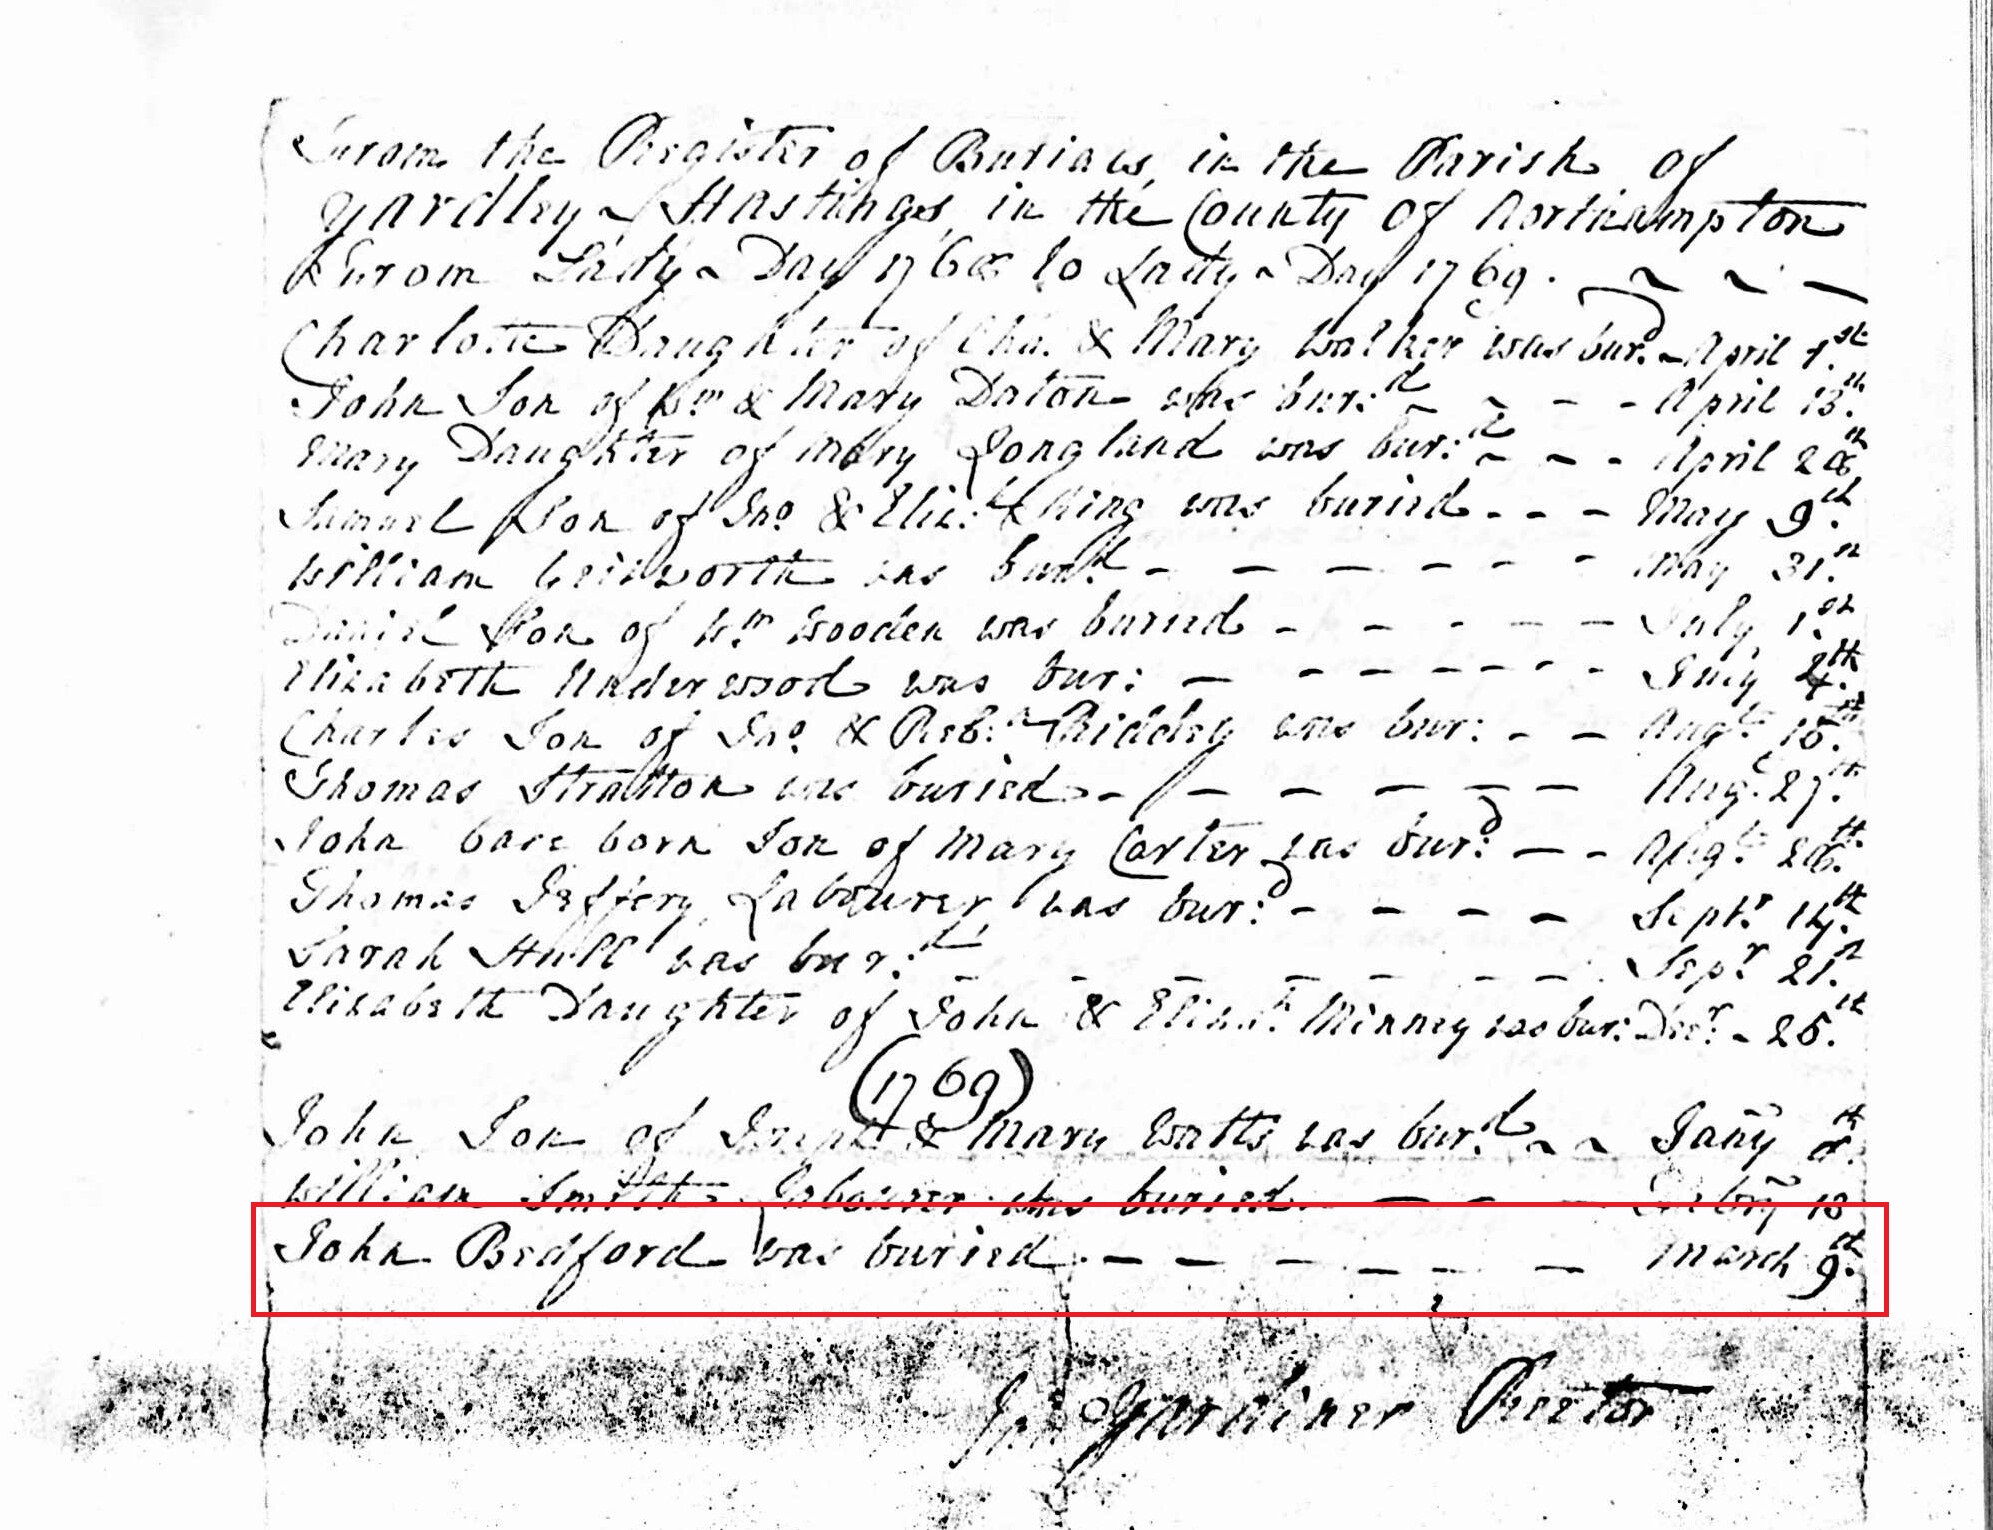 From the Register of Burials, in the Parish of
Yardley~Hastings, in the County of Northampton
From Lady~Day 1768 to Lady~Day 1769. ~ ~ —
Charlotte Daughter of Cha. & Mary Walker was bur.d ~ April 1.st
John Son of Wm & Mary Daton was bur:d ~ ~ - - - April 13.th
Mary Daughter of Mary Longland was bur:d ~ - - April 28th
Samuel Son of Jno & Eliz:th King was buried - - - May 9.th
William was bur.d - - - - - - May 31.st
Daniel Son of Wm Wooden was buried - - - - - July 1.st
Elizabeth Underwood was bur: - - - - - - July 4.th
Charles Son of Jno & Reb:a Riddey was bur: - - Augt 15.th
Thomas Stratton was buried - - - - - - Augt 27.th
John base born Son of Mary Carter was bur:d - - Augt 28.th
Thomas Jeffery, Labourer was bur:d - - - - Septr 14.th
Sarah Hull was bur:d - - - - - - Sepr 21.st
Elizabeth Daughter of John & Elizath Minney was bur: Decr - 25.th
(1769)
John Son of Joseph & Mary Watts was bur.d ~ ~ Jany 8.th
William Smith Labourer was buried - - - Febry 18
John Bedford was buried - - - - - - March 9.th
Jno Gardiner Rector